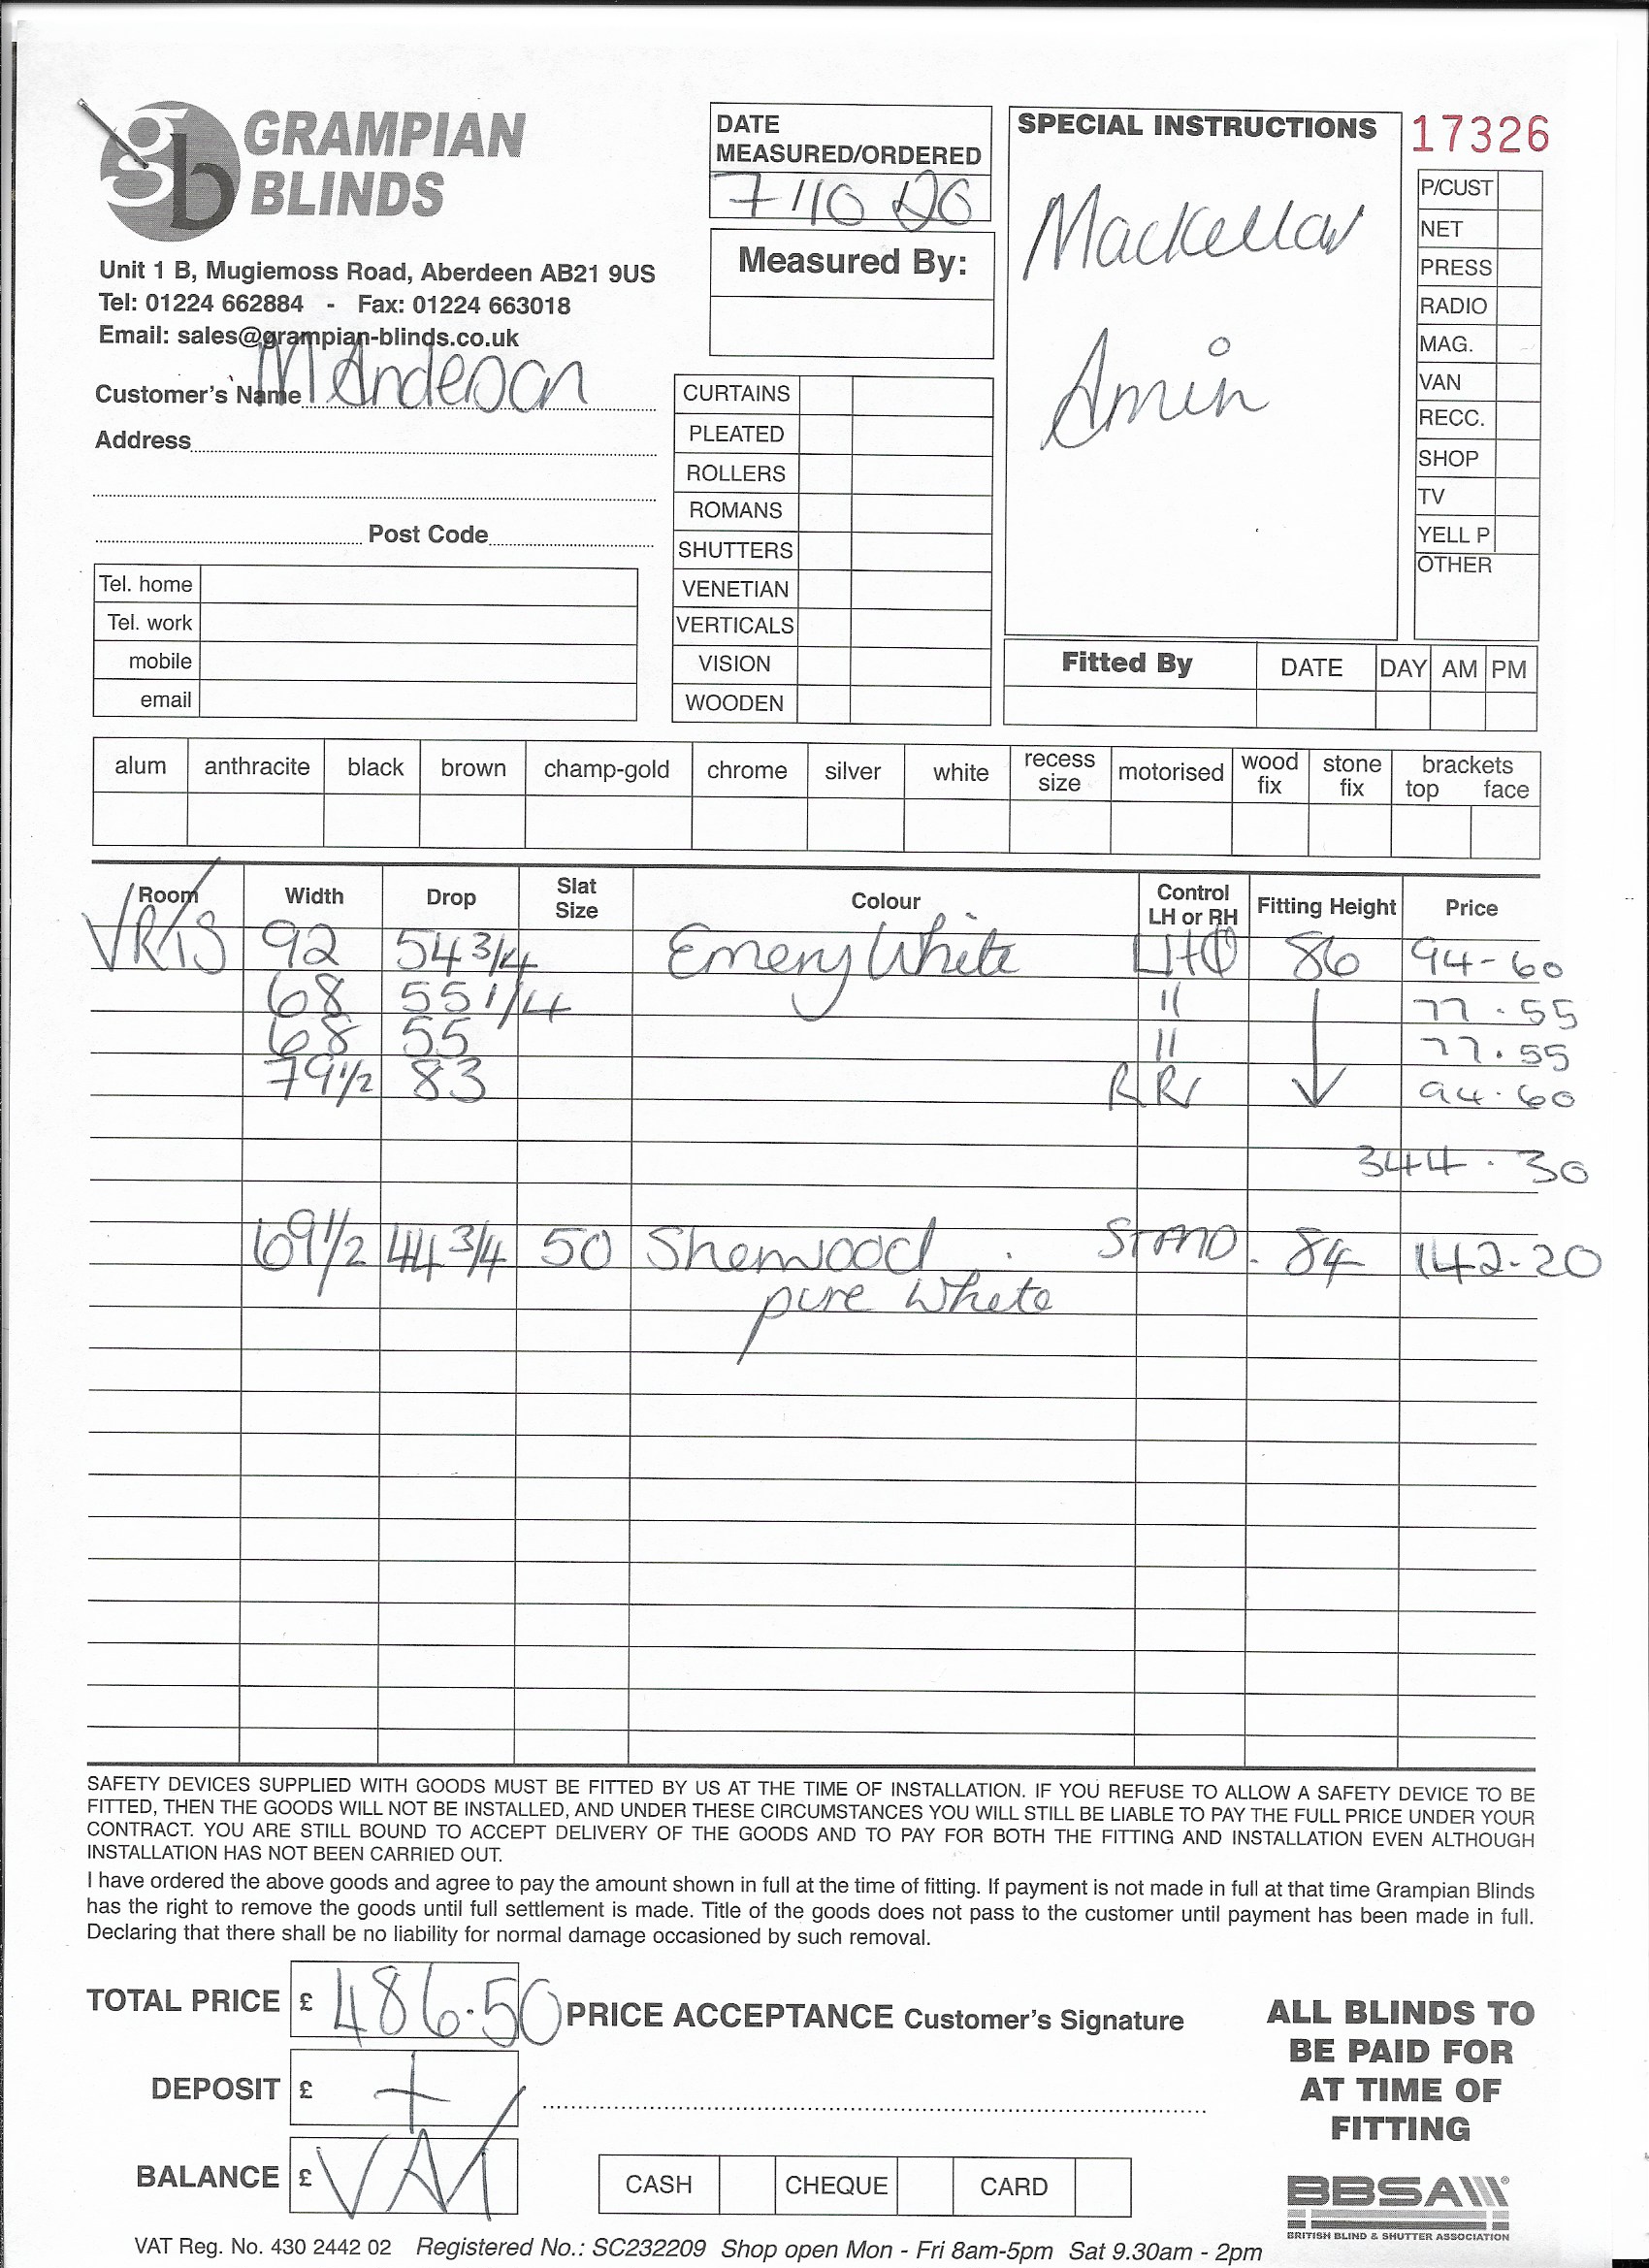 gb GRAMPIAN
BLINDS
Unit 1 B, Mugiemoss Road, Aberdeen AB21 9US
Tel: 01224 662884 - Fax: 01224 663018
Email: sales@grampian-blinds.co.uk
Customer's Name M Anderson
Address
Post Code
Tel. home
Tel. work
mobile
email
DATE
MEASURED/ORDERED
7/10/20
Measured By:
CURTAINS
PLEATED
ROLLERS
ROMANS
SHUTTERS
VENETIAN
VERTICALS
VISION
WOODEN
SPECIAL INSTRUCTIONS
Mackellar
Amin
17326
P/CUST
NET
PRESS
RADIO
MAG.
VAN
RECC.
SHOP
TV
YELL P
OTHER
Fitted By DATE DAY AM PM
alum anthracite black brown champ-gold chrome silver white recess size motorised wood fix stone fix brackets top face
Room Width Drop Slat Size Colour Control LH or RH Fitting Height Price
92 54 3/4 Emery White 86 94-60
68 55 1/4 " 77.55
68 55 " 77.55
79 1/2 83 94.60
344.30
69 1/2 44 3/4 50 Sherwood STAND. 84 142-20
pure White
SAFETY DEVICES SUPPLIED WITH GOODS MUST BE FITTED BY US AT THE TIME OF INSTALLATION. IF YOU REFUSE TO ALLOW A SAFETY DEVICE TO BE
FITTED, THEN THE GOODS WILL NOT BE INSTALLED, AND UNDER THESE CIRCUMSTANCES YOU WILL STILL BE LIABLE TO PAY THE FULL PRICE UNDER YOUR
CONTRACT. YOU ARE STILL BOUND TO ACCEPT DELIVERY OF THE GOODS AND TO PAY FOR BOTH THE FITTING AND INSTALLATION EVEN ALTHOUGH
INSTALLATION HAS NOT BEEN CARRIED OUT.
I have ordered the above goods and agree to pay the amount shown in full at the time of fitting. If payment is not made in full at that time Grampian Blinds
has the right to remove the goods until full settlement is made. Title of the goods does not pass to the customer until payment has been made in full.
Declaring that there shall be no liability for normal damage occasioned by such removal.
TOTAL PRICE £ 486.50 PRICE ACCEPTANCE Customer's Signature
DEPOSIT £ +
BALANCE £ VAT
CASH CHEQUE CARD
ALL BLINDS TO
BE PAID FOR
AT TIME OF
FITTING
BBSA
BRITISH BLIND & SHUTTER ASSOCIATION
VAT Reg. No. 430 2442 02 Registered No.: SC232209 Shop open Mon - Fri 8am-5pm Sat 9.30am - 2pm